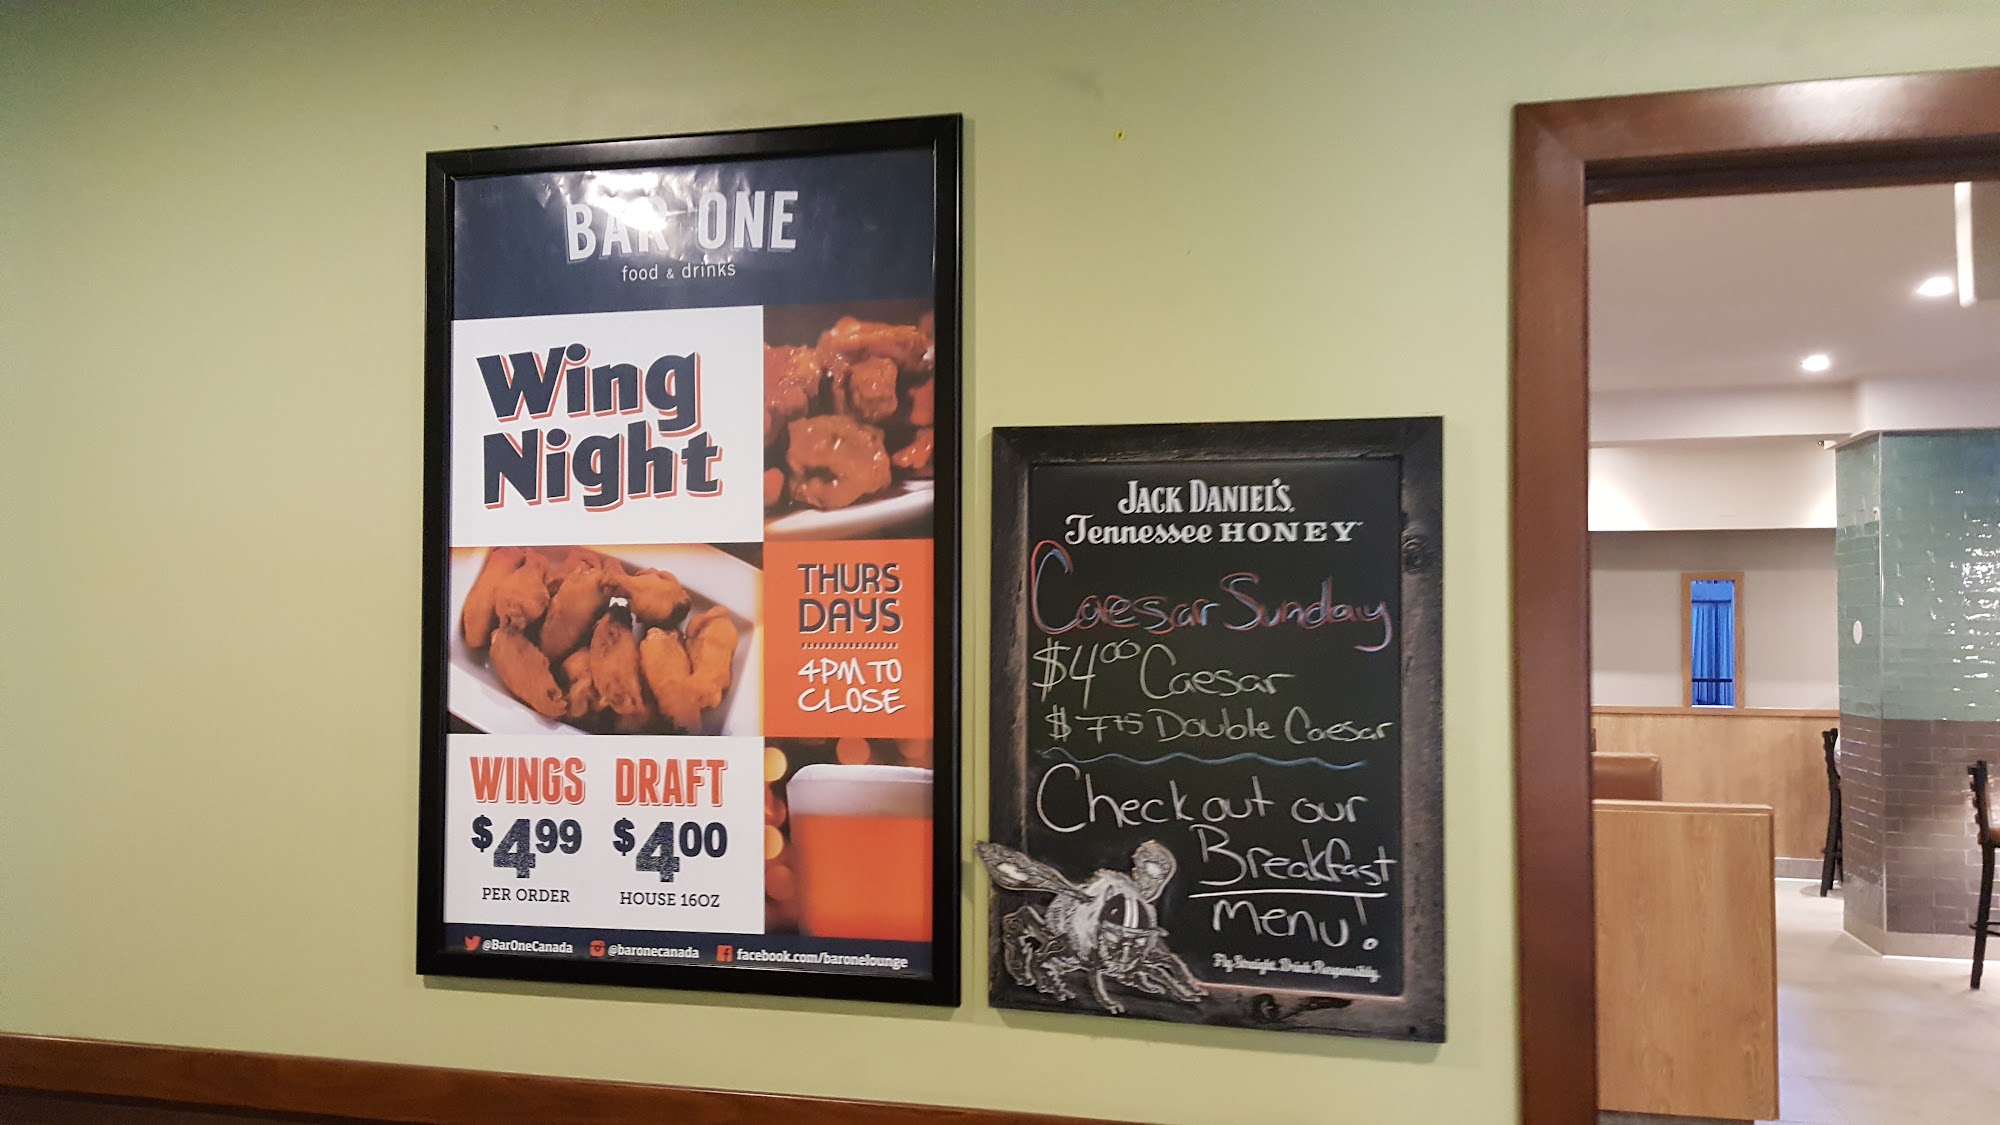 BAR ONE
food & drinks
Wing
Night
THURS
DAYS
4PM TO
CLOSE
WINGS
$4.99
PER ORDER
DRAFT
$4.00
HOUSE 16OZ
@BarOneCanada
@baronecanada
facebook.com/baronelounge
JACK DANIEL'S
Tennessee HONEY
Caesar Sunday
$4.00 Caesar
$7.75 Double Caesar
Check out our
Breakfast
menu!
Fly Straight. Drink Responsibly.